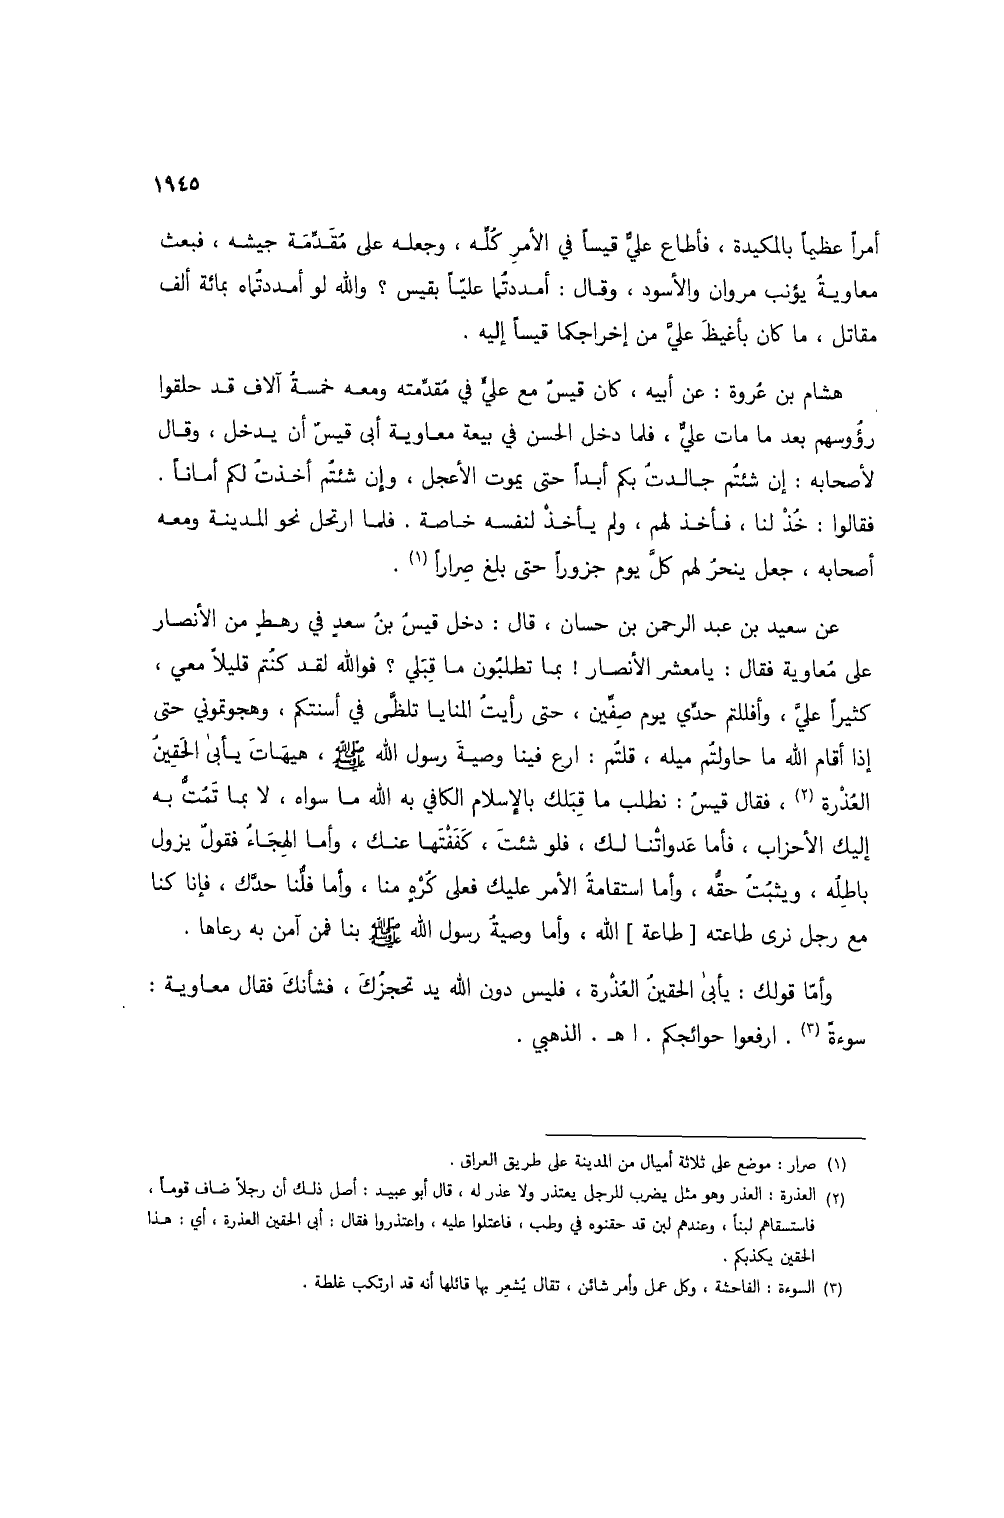 ١٩٤٥
أمراً عظيماً بالمكيدة ، فأطاع عليٌّ قيساً في الأمرِ كُلّه ، وجعله على مُقَدِّمَة جيشه ، فبعث
معاويةُ يؤنب مروان والأسود ، وقال : أمددتُما عليّاً بقيس ؟ والله لو أمددتُماه بمائة ألف
مقاتل ، ما كان بأغيظَ عليَّ من إخراجكما قيساً إليه .
هشام بن عُروة : عن أبيه ، كان قيسٌ مع عليٍّ في مُقدِّمته ومعه خمسةُ آلاف قد حلقوا
رؤُوسهم بعد ما مات عليٌّ ، فلما دخل الحسن في بيعة معاوية أبى قيسٌ أن يدخل ، وقال
لأصحابه : إن شئتُم جالدتُ بكم أبداً حتى يموت الأعجل ، وإن شئتُم أخذتُ لكم أماناً .
فقالوا : خُذْ لنا ، فأخذ لهم ، ولم يأخذْ لنفسه خاصة . فلما ارتحل نحو المدينة ومعه
أصحابه ، جعل ينحرُ لهم كلَّ يوم جزوراً حتى بلغ صِراراً (١) .
عن سعيد بن عبد الرحمن بن حسان ، قال : دخل قيسُ بنُ سعدٍ في رهطٍ من الأنصار
على مُعاوية فقال : يامعشر الأنصار ! بما تطلبُون ما قِبَلي ؟ فوالله لقد كنُتم قليلاً معي ،
كثيراً عليَّ ، وأفللتم حدِّي يوم صِفِّين ، حتى رأيتُ المنايا تلظَّى في أسنتكم ، وهجوتموني حتى
إذا أقام الله ما حاولتُم ميله ، قلتُم : ارع فينا وصيةَ رسول الله ﷺ ، هيهَاتَ يأبىٰ الحَقِينُ
العُذْرة (٢) ، فقال قيسٌ : نطلب ما قِبَلك بالإسلام الكافي به الله ما سواه ، لا بما تَمُتُّ به
إليك الأحزاب ، فأما عَدواتُنا لك ، فلو شئتَ ، كَفَفْتَها عنك ، وأما الهِجَاءُ فقولٌ يزول
باطلُه ، ويثبُتُ حقُّه ، وأما استقامةُ الأمر عليك فعلى كُرْهٍ منا ، وأما فلُّنا حدَّك ، فإنا كنا
مع رجل نرى طاعته [ طاعة ] الله ، وأما وصيةُ رسول الله ﷺ بنا فمن آمن به رعاها .
وأمّا قولك : يأبىٰ الحقينُ العُذْرة ، فليس دون الله يد تحجزُكَ ، فشأنكَ فقال معاوية :
سوءةً (٣) . ارفعوا حوائجكم . ا هـ . الذهبي .
(١) صرار : موضع على ثلاثة أميال من المدينة على طريق العراق .
(٢) العذرة : العذر وهو مثل يضرب للرجل يعتذر ولا عذر له ، قال أبو عبيد : أصل ذلك أن رجلاً ضاف قوماً ،
فاستسقاهم لبناً ، وعندهم لبن قد حقنوه في وطب ، فاعتلوا عليه ، واعتذروا فقال : أبى الحقين العذرة ، أي : هذا
الحقين يكذبكم .
(٣) السوءة : الفاحشة ، وكل عمل وأمر شائن ، تقال يُشعِر بها قائلها أنه قد ارتكب غلطة .